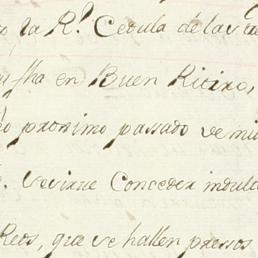 la R.l Cedula de las
fha en Buen Retiro,
proximo passado de mil
se sirve Conceder indult
Reos, que se hallen presos